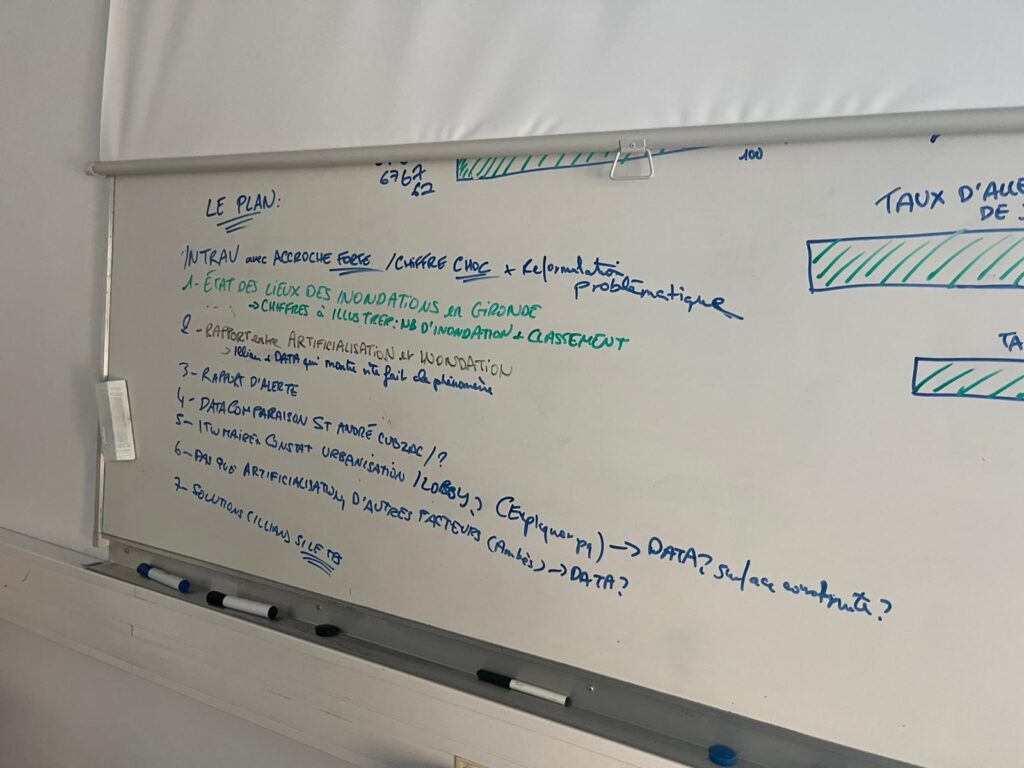 6767
62
100
LE PLAN:
TAUX D'ALE
DE
INTRAV avec ACCROCHE FORTE / CHIFFRE CHOC + Reformulation
problèmatique
1- ÉTAT DES LIEUX DES INONDATIONS en GIRONDE
→ CHIFFRES à ILLUSTRER: NB D'INONDATION + CLASSEMENT
2- RAPPORT entre ARTIFICIALISATION et INONDATION
→ + DATA qui montre fait phénomène
TA
3- RAPPORT D'ALERTE
4- DATA COMPARAISON ST ANDRÉ CUBZAC / ?
5- ITW MAIRE + CONSTAT URBANISATION / LOBBY, (Expliquer pq) → DATA? surface construite?
6- PAS QUE ARTIFICIALISATION, D'AUTRES FACTEURS (Ambès) → DATA?
7- SOLUTIONS (ILLIAN) SI LE TPS